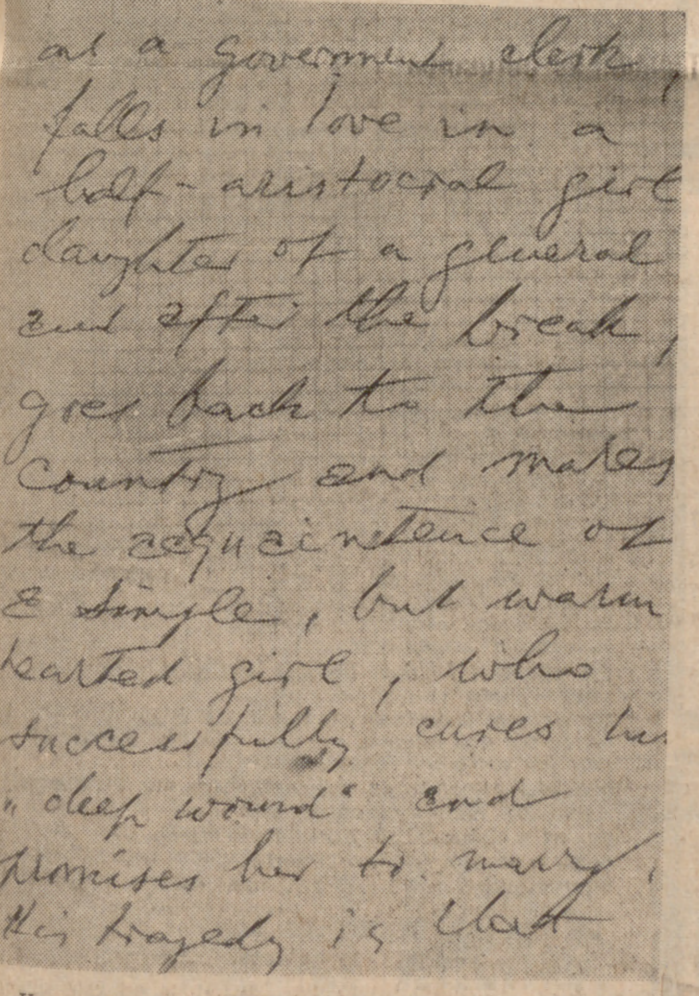 and a government clerk,
falls in love in a
half-aristocrat girl
daughter of a general
and after the break,
goes back to the
country and makes
the acquaintence of
a simple, but warm
hearted girl, who
successfully cures his
„deep wound“ and
promises her to marry.
His tragedy is that